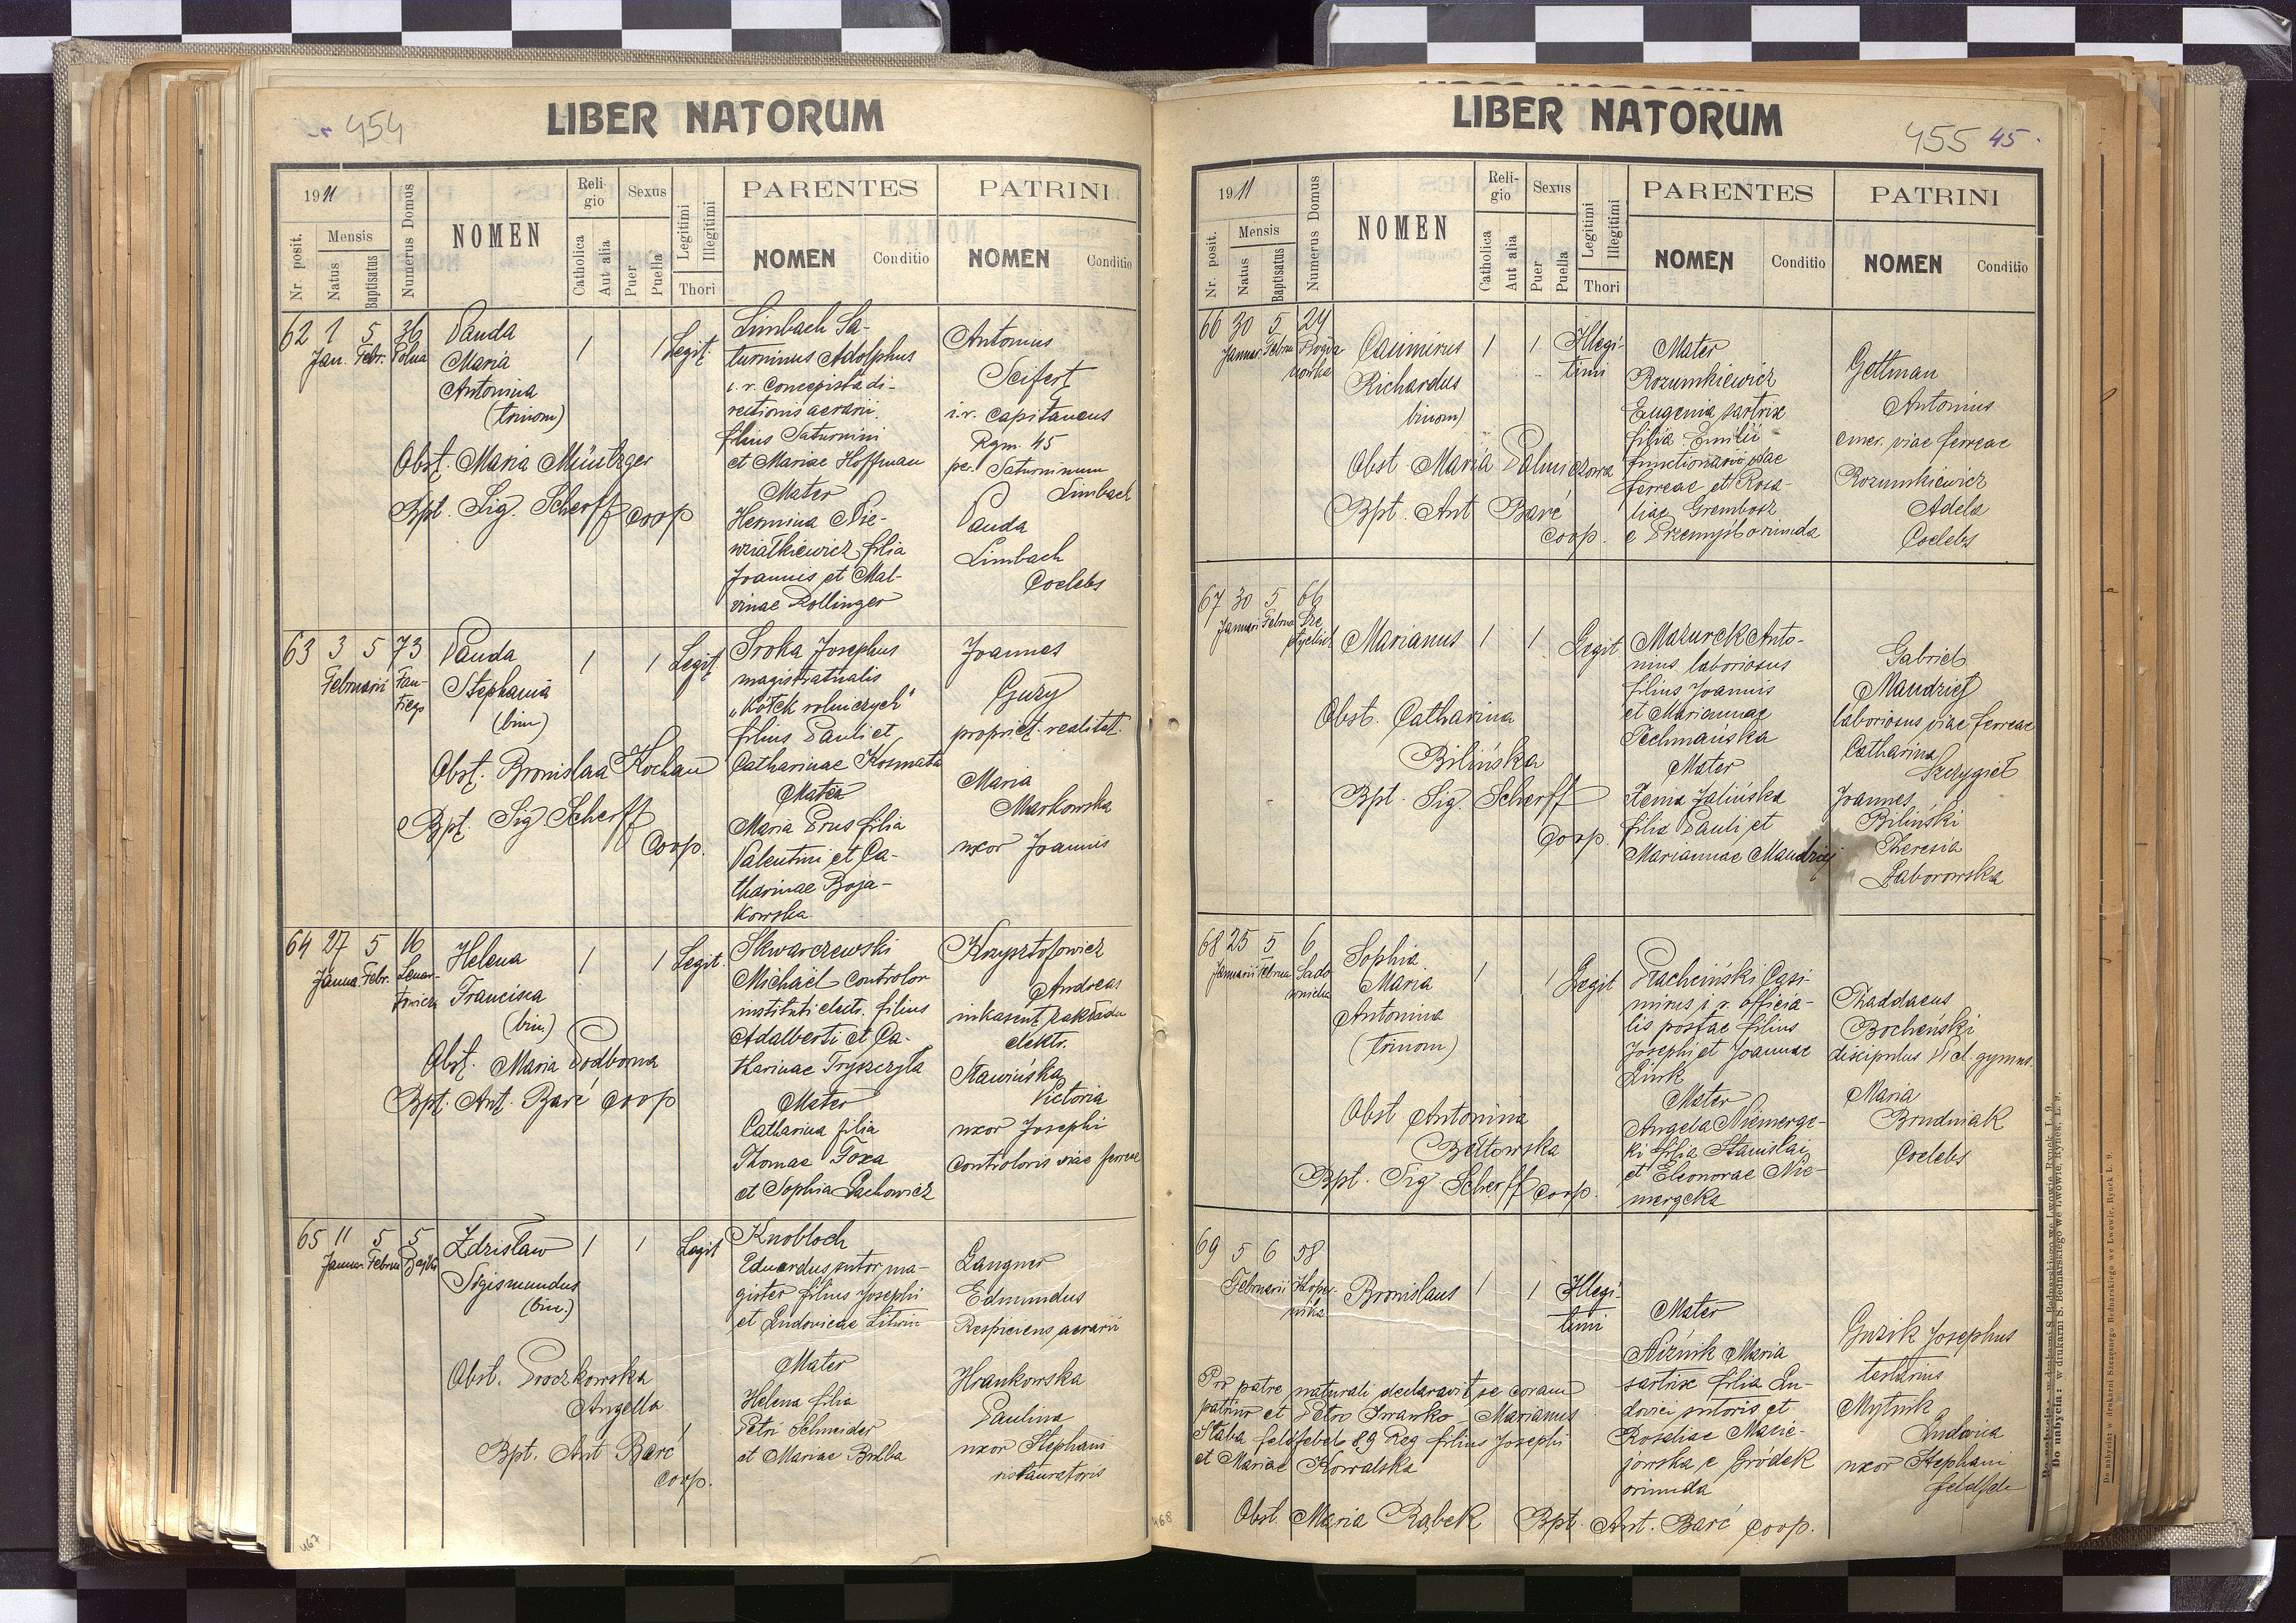 454
LIBER NATORUM
1911
Nr. posit.
Mensis
Natus
Baptisatus
Numerus Domus
NOMEN
Religio
Catholica
Aut alia
Sexus
Puer
Puella
Legitimi
Illegitimi
Thori
PARENTES
NOMEN Conditio
PATRINI
NOMEN Conditio
62 1 5 36
Jan. Febr. Polna
Vanda
Maria
Antonina
(trinom)
1 1 Legit.
Obst. Maria Müntzger
Bpt. Sig. Scherff Coop
Limbach Sa-
turninus Adolphus
i. r. concepista di-
rectionis aerarii
filius Saturnini
et Mariae Hoffman
Mater
Hermina Nie-
wiatkiewicz filia
Joannis et Mal-
vinae Rollinger
Antonius
Seifert
i. r. capitaneus
Rgm. 45
per Saturninum
Limbach
Vanda
Limbach
Coelebs
63 3 5 73
Februarii
Vanda
Stephania
(bin)
1 1 Legit.
Obst. Bronislaa Kochań
Bpt. Sig Scherff
Coop.
Sroka Josephus
magistratualis
„Kółek rolniczych"
filius Pauli et
Catharinae Kosmata
Mater
Maria Prus filia
Valentini et Ca-
tharinae Boja-
kowska
Joannes
Guzy
propriet. realitat.
Maria
Markowska
uxor Joannis
64 27 5 16
Janua. Febr. Lenar-
towicza
Helena
Francisca
(bin.)
1 1 Legit.
Obst. Maria Podborna
Bpt. Ant. Barć Coop
Skwarczewski
Michaël controlor
instituti electr. filius
Adalberti et Ca-
tharinae Tryszczyła
Mater
Catharina filia
Thomae Foxa
et Sophia Lachowicz
Krzysztofowicz
Andreas
inkasent zakładu
elektr.
Stawińska
Victoria
uxor Josephi
controloris viae ferreae
65 11 5 5
Januar. Februa
Zdzislaw
Sigismundus
(bin.)
1 1 Legit
Obst. Proczkowska
Angella
Bpt. Ant Barć
Coop.
Knobloch
Eduardus sutor ma-
gister filius Josephi
et Ludovicae Litwin
Mater
Helena filia
Petri Schneider
et Mariae Bulba
Langner
Edmundus
Respiciens aerarii
Hrankowska
Paulina
uxor Stephani
ristauratoris
467
LIBER NATORUM
455 45
1911
Nr. posit.
Mensis
Natus
Baptisatus
Numerus Domus
NOMEN
Religio
Catholica
Aut alia
Sexus
Puer
Puella
Legitimi
Illegitimi
Thori
PARENTES
NOMEN Conditio
PATRINI
NOMEN Conditio
66 30 5 24
Januar. Februa
Casimirus
Richardus
binom)
1 1 Illegi-
timi
Obst Maria Palmiczowa
Bpt. Ant Barć
Coop.
Mater
Rozumkiewicz
Eugenia sartrix
filia Emilii
functionarii viae
ferreae et Rosa-
liae Grembosz
e Przemyśl oriunda
Gottman
Antonius
emer. viae ferreae
Rozumkiewicz
Adela
Coelebs
67 30 5 66
Januari Februa
Marianus
1 1 Legit
Obst. Catharina
Bilińska
Bpt. Sig. Scherff
Coop.
Mazurek Anto-
nius laboriosus
filius Joannis
et Mariannae
Techmańska
Mater
Xenia Zalińska
filia Pauli et
Mariannae Maudziej
Gabriel
Maudziej
laboriosus viae ferreae
Catharina
Szczygieł
Joannes
Biliński
Theresia
Zaborowska
68 25 5 6
Januarii Februa Sado
wnicka
Sophia
Maria
Antonina
(trinom)
1 1 Legit
Obst Antonina
Bełtowska
Bpt. Sig Scherff Coop.
Pracheiński Casi-
mirus i r. officia-
lis postae filius
Josephi et Joannae
Żurk
Mater
Angela Niemerge-
ki filia Stanislai
et Eleonorae Nie-
mergcka
Thaddaeus
Bocheński
discipulus VI cl. gymns.
Maria
Brudniak
Coelebs
69 5 6 58
Februarii Koper-
nika
Bronislaus
1 1 Illegi-
timi
Pro patre naturali declaravit se coram
patrino et Petro Iwanko - Marianus
Staba feldfebel 89 Reg filius Josephi
et Mariae Kowalska
Obst. Maria Rąbek Bpt. Ant. Barć Coop.
Mater
Niżnik Maria
sartrix filia Lu-
dovici sutoris et
Rosaliae Macie-
jowska e Gródek
oriunda
Guzik Josephus
tertiarius
Mytnik
Ludovica
uxor Stephani
feldfeb
468
Do nabycia: w drukarni S. Bednarskiego we Lwowie, Rynek, L. 9.
Do nabycia: w drukarni Szczęsnego Bednarskiego we Lwowie, Rynek L. 9.